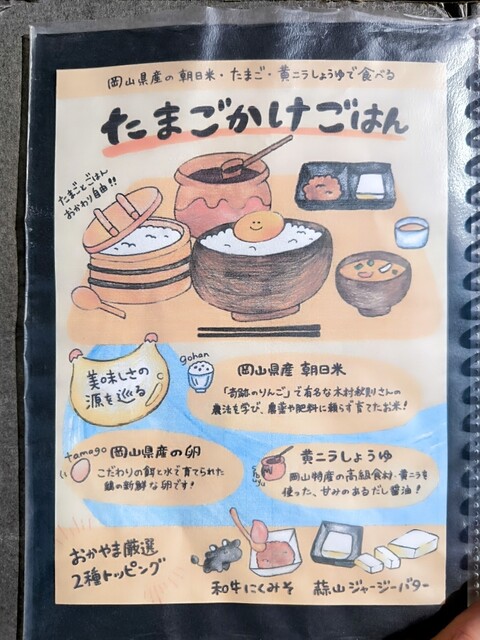 岡山県産の朝日米・たまご・黄ニラしょうゆで食べる
たまごかけごはん
たまごとごはん
おかわり自由!!
美味しさの
源を巡る
gohan
岡山県産 朝日米
「奇跡のりんご」で有名な木村秋則さんの
農法を学び、農薬や肥料に頼らず育てたお米!
tamago
岡山県産の卵
こだわりの餌と水で育てられた
鶏の新鮮な卵です!
shoyu
黄ニラしょうゆ
岡山特産の高級食材・黄ニラを
使った、甘みのあるだし醤油!
おかやま厳選
2種トッピング
和牛にくみそ
蒜山ジャージーバター